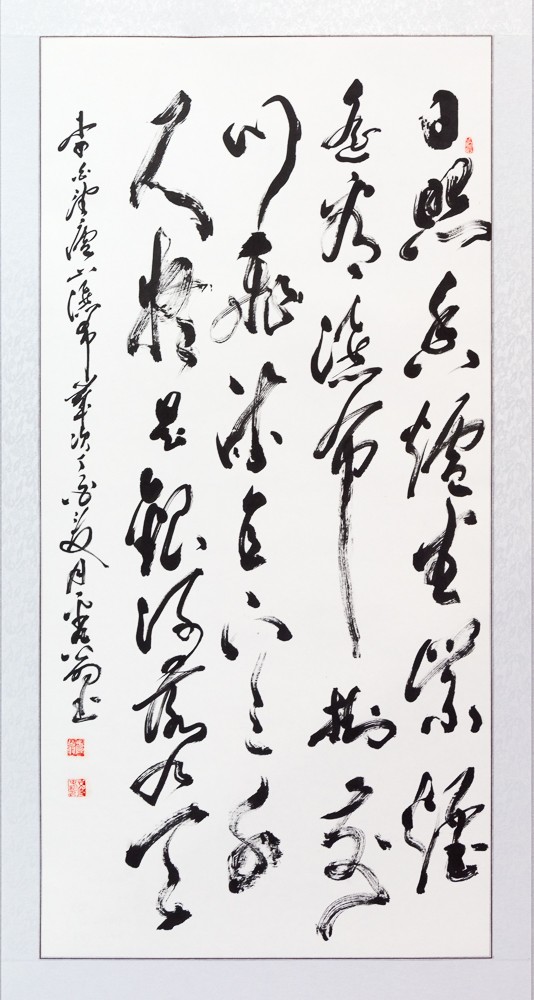 日照香爐生紫煙
遙看瀑布掛前
川飛流直下三千
尺疑是銀河落九天
李白望廬山瀑布歲次丁酉夏月翁書